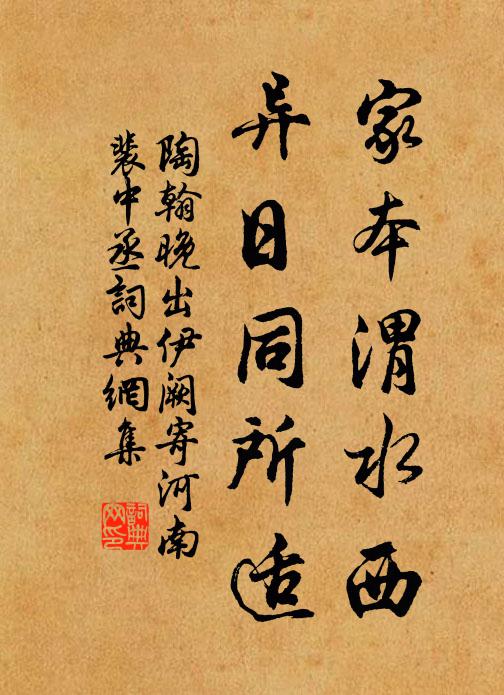 家本渭水西
异日同所适
陶翰晚出伊阙寄河南
裴中丞詞典網集
詞典网印